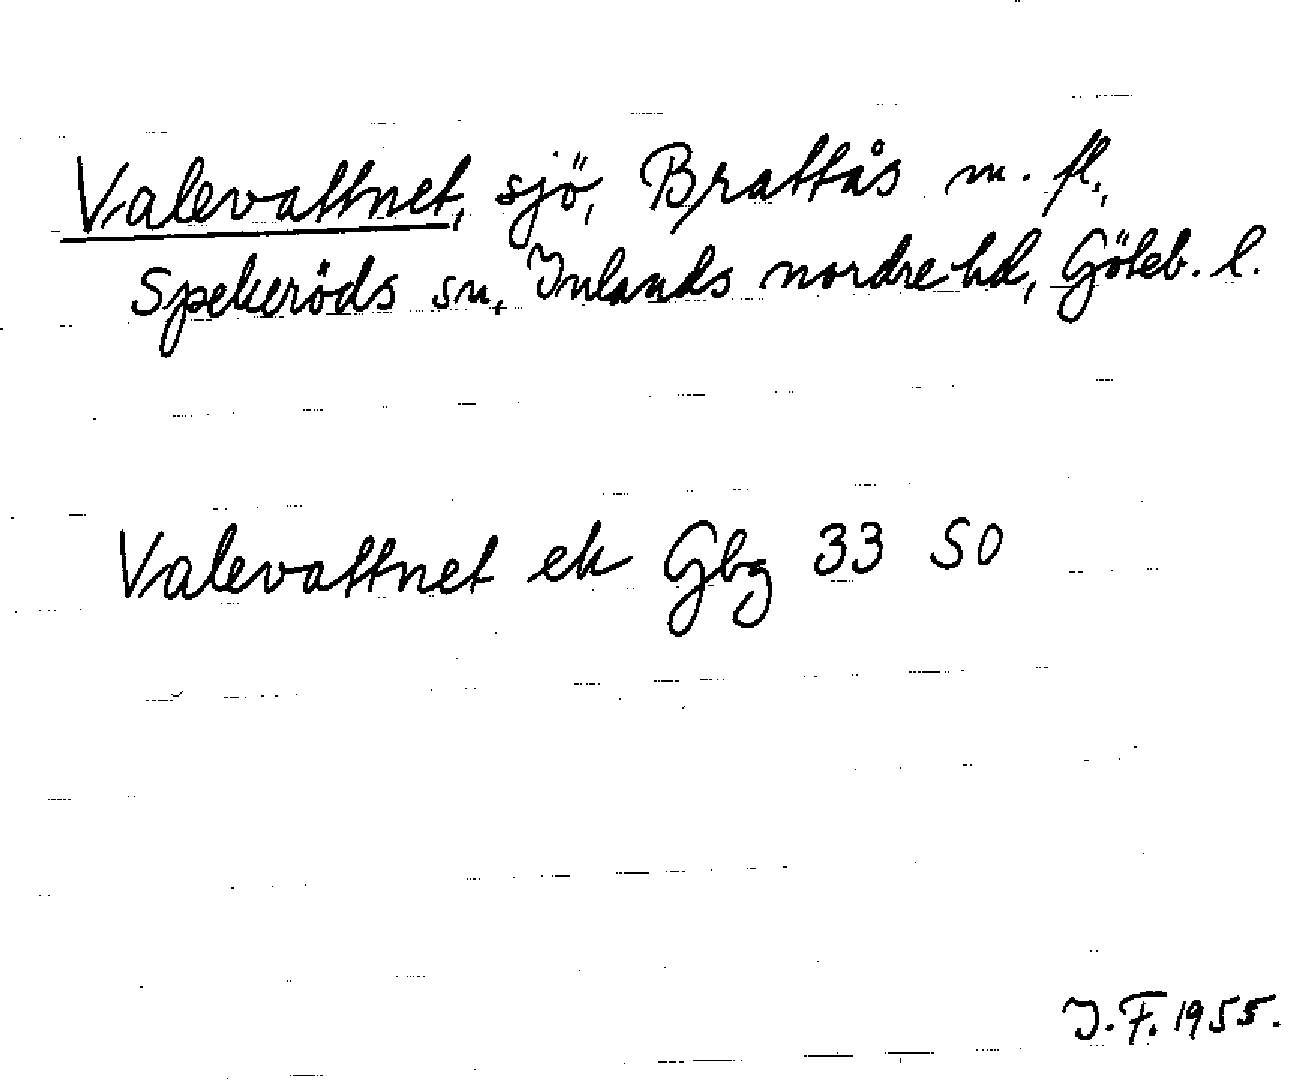 Valevattnet, sjö, Brattås m. fl.,
Spekeröds sn, Inlands nordre hd, Göteb. l.
Valevattnet ek Gbg 33 SO
I. F. 1955.